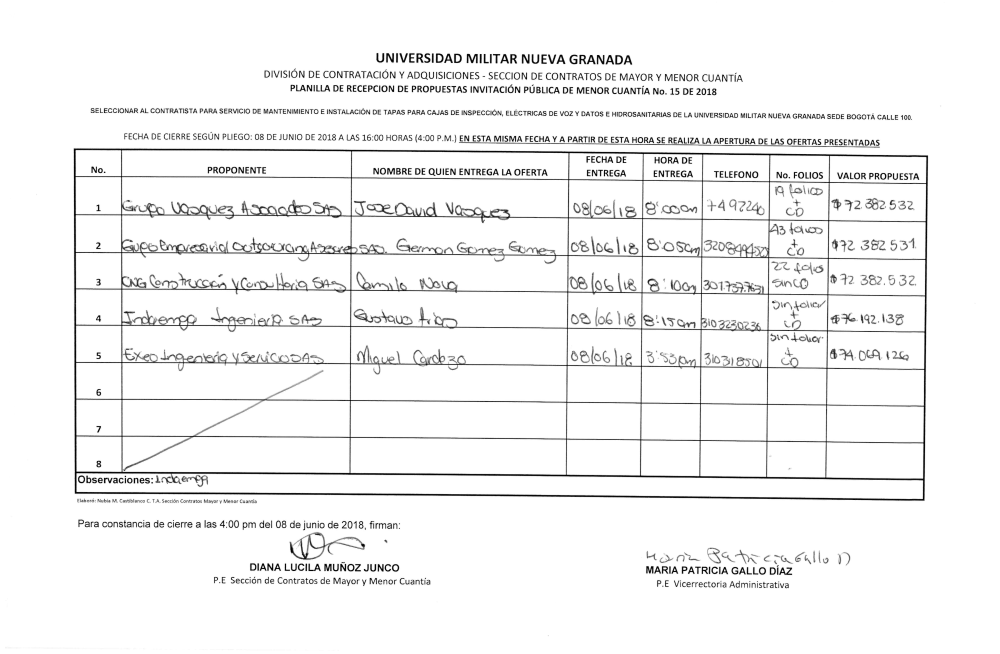 UNIVERSIDAD MILITAR NUEVA GRANADA
DIVISIÓN DE CONTRATACIÓN Y ADQUISICIONES - SECCION DE CONTRATOS DE MAYOR Y MENOR CUANTÍA
PLANILLA DE RECEPCION DE PROPUESTAS INVITACIÓN PÚBLICA DE MENOR CUANTÍA No. 15 DE 2018
SELECCIONAR AL CONTRATISTA PARA SERVICIO DE MANTENIMIENTO E INSTALACIÓN DE TAPAS PARA CAJAS DE INSPECCIÓN, ELÉCTRICAS DE VOZ Y DATOS E HIDROSANITARIAS DE LA UNIVERSIDAD MILITAR NUEVA GRANADA SEDE BOGOTÁ CALLE 100.
FECHA DE CIERRE SEGÚN PLIEGO: 08 DE JUNIO DE 2018 A LAS 16:00 HORAS (4:00 P.M.) EN ESTA MISMA FECHA Y A PARTIR DE ESTA HORA SE REALIZA LA APERTURA DE LAS OFERTAS PRESENTADAS
No. PROPONENTE NOMBRE DE QUIEN ENTREGA LA OFERTA FECHA DE ENTREGA HORA DE ENTREGA TELEFONO No. FOLIOS VALOR PROPUESTA
1 Grupo Vasquez Asociados SAS Jose David Vasquez 08/06/18 8:00am 7492240 19 folios + CD $72.382.532
2 Grupo Empresarial Outsourcing Asesores SAS. German Gomez Gomez 08/06/18 8:05am 43 folios + CD $72 382.531
3 CNG Construcción y Consultoria SAS Camilo Nova 08/06/18 8:10am 301.737.7631 22 folio sin CD $72 382.532
4 Ingenieria SAS Gustavo 08/06/18 8:15am 3103230236 sin foliar + CD $76.192.138
5 Exeo Ingenieria y Servicio SAS Miguel Cardozo 08/06/18 3:53pm sin foliar + CD $74.069.126
6
7
8
Observaciones:
Elaboró: Nubia M. Castiblanco C. T.A. Sección Contratos Mayor y Menor Cuantía
Para constancia de cierre a las 4:00 pm del 08 de junio de 2018, firman:
Maria Patricia Gallo D
DIANA LUCILA MUÑOZ JUNCO MARIA PATRICIA GALLO DÍAZ
P.E Sección de Contratos de Mayor y Menor Cuantía P.E Vicerrectoria Administrativa